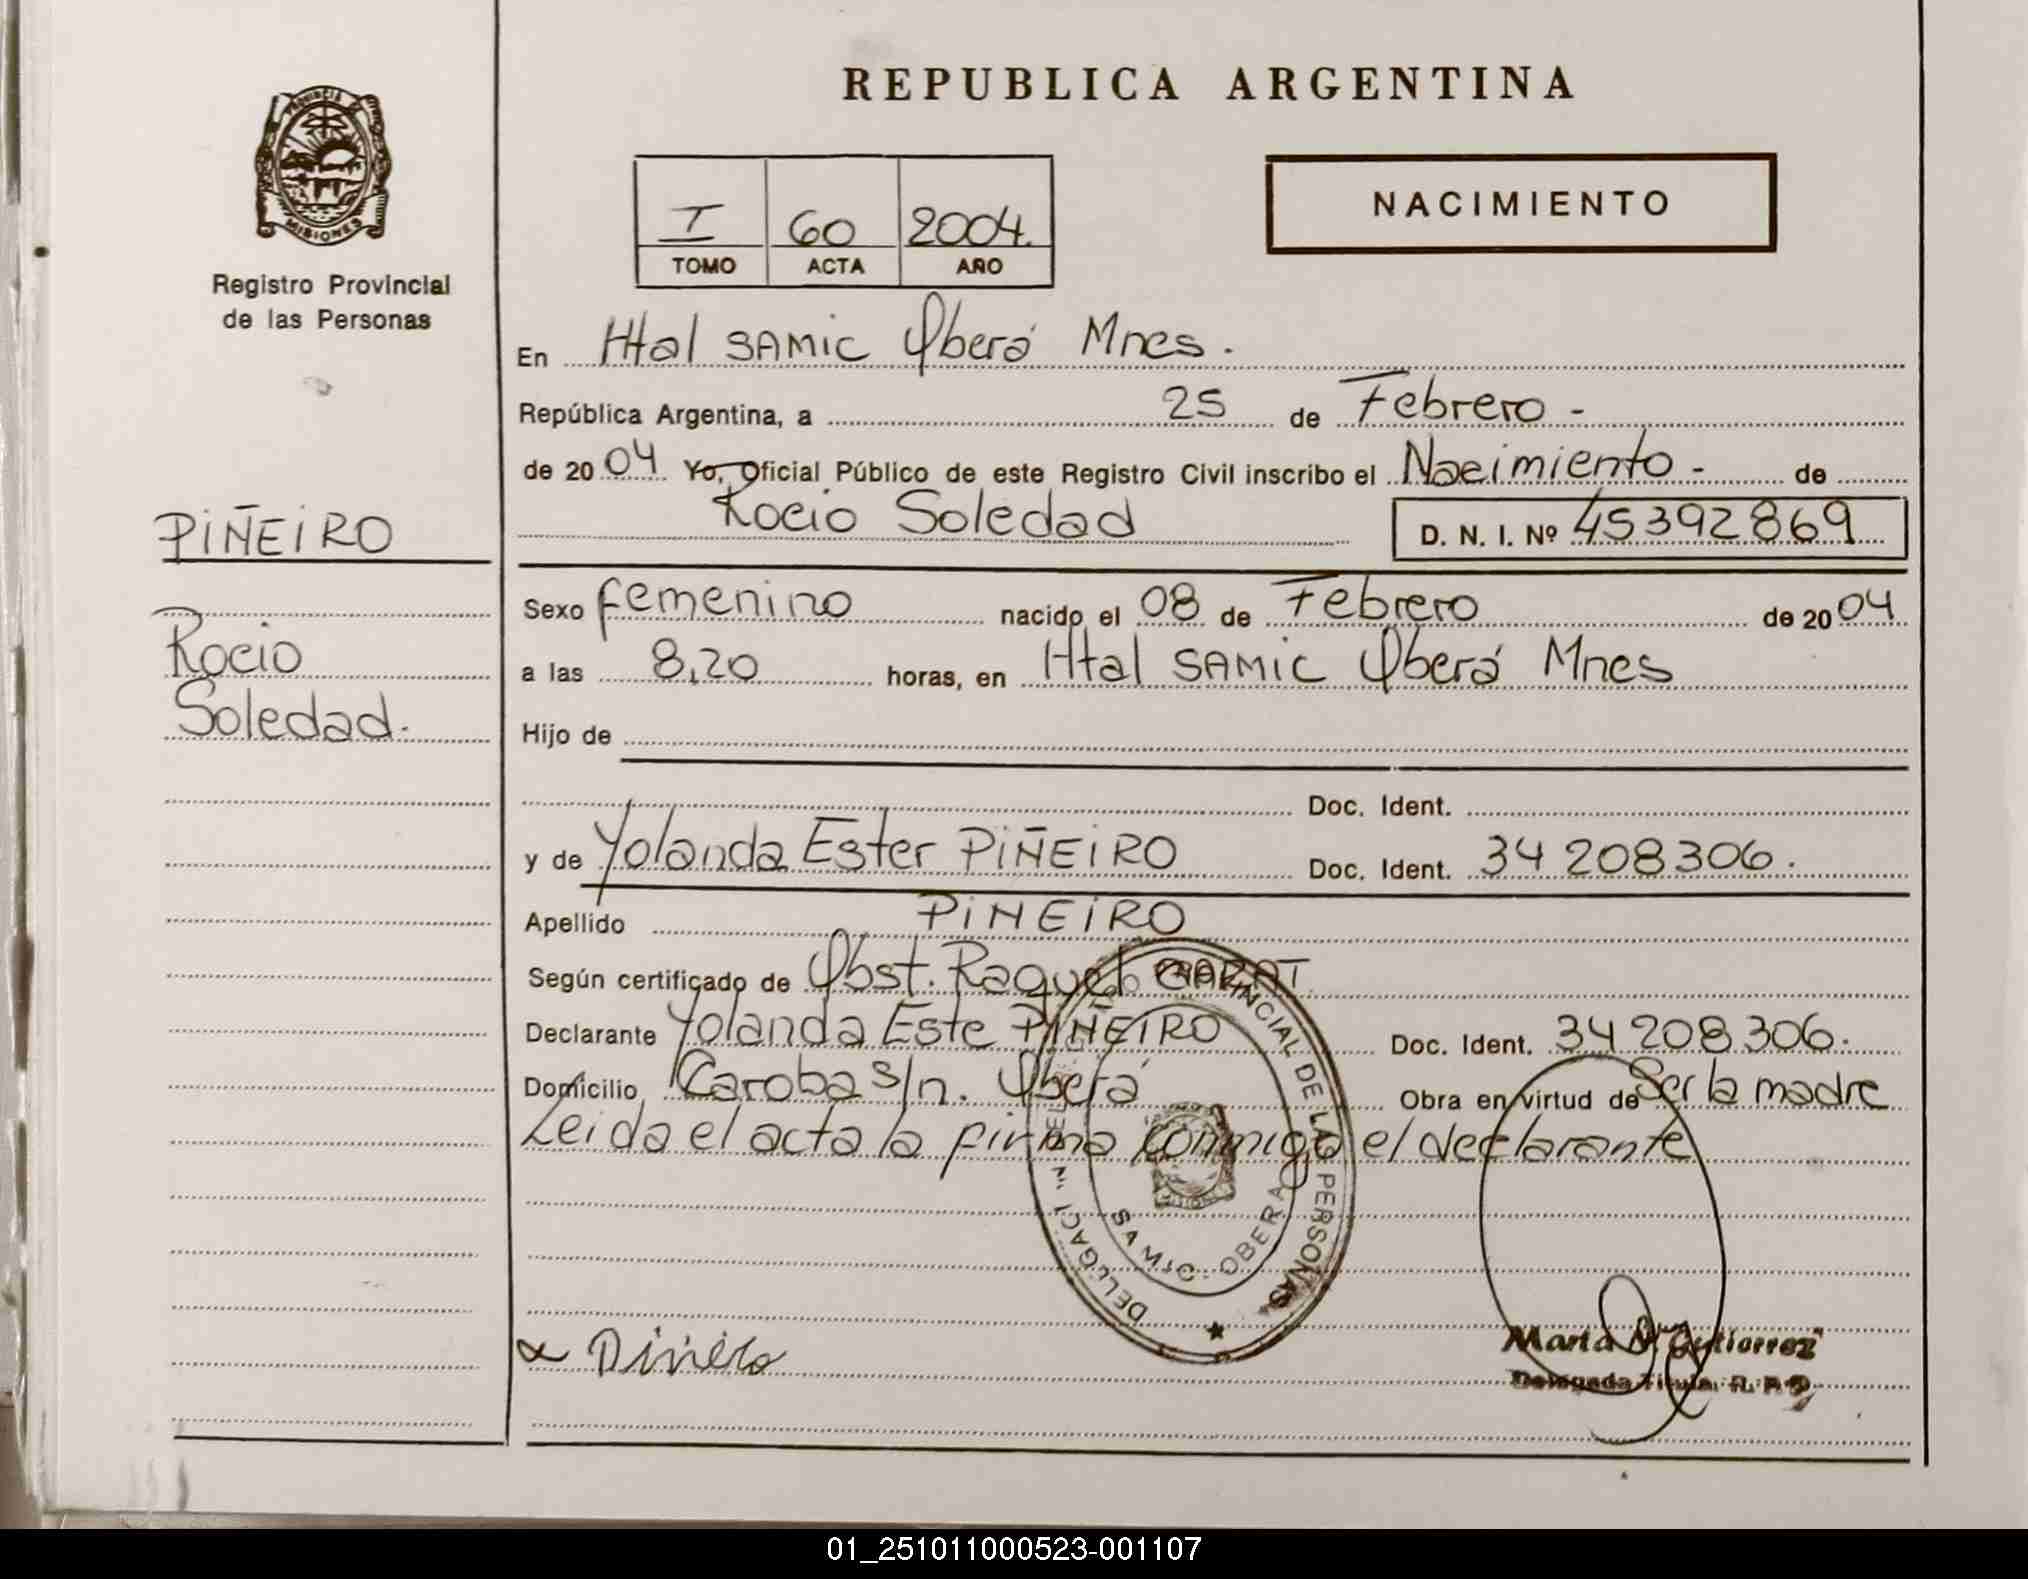 REPUBLICA ARGENTINA
PROVINCIA DE
MISIONES
Registro Provincial
de las Personas
I 60 2004.
TOMO ACTA AÑO
NACIMIENTO
En Htal SAMIC Oberá Mnes.
República Argentina, a 25 de Febrero -
de 20 04 Yo, Oficial Público de este Registro Civil inscribo el Nacimiento - de
Rocio Soledad D. N. I. Nº 45392869
PIÑEIRO
Rocio
Soledad.
Sexo femenino nacido el 08 de Febrero de 20 04
a las 8,20 horas, en Htal SAMIC Oberá Mnes
Hijo de
Doc. Ident.
y de Yolanda Ester PIÑEIRO Doc. Ident. 34 208306.
Apellido PIÑEIRO
Según certificado de Obst. Raquel
Declarante Yolanda Este PIÑEIRO Doc. Ident. 34 208 306.
Domicilio Caroba s/n. Oberá Obra en virtud de Ser la madre
Leida el acta la firma conmigo el declarante
PROVINCIAL DE LAS PERSONAS
SAMIC - OBERA
Marta Gutierrez
Delegada Titular R. P. P.
01_251011000523-001107